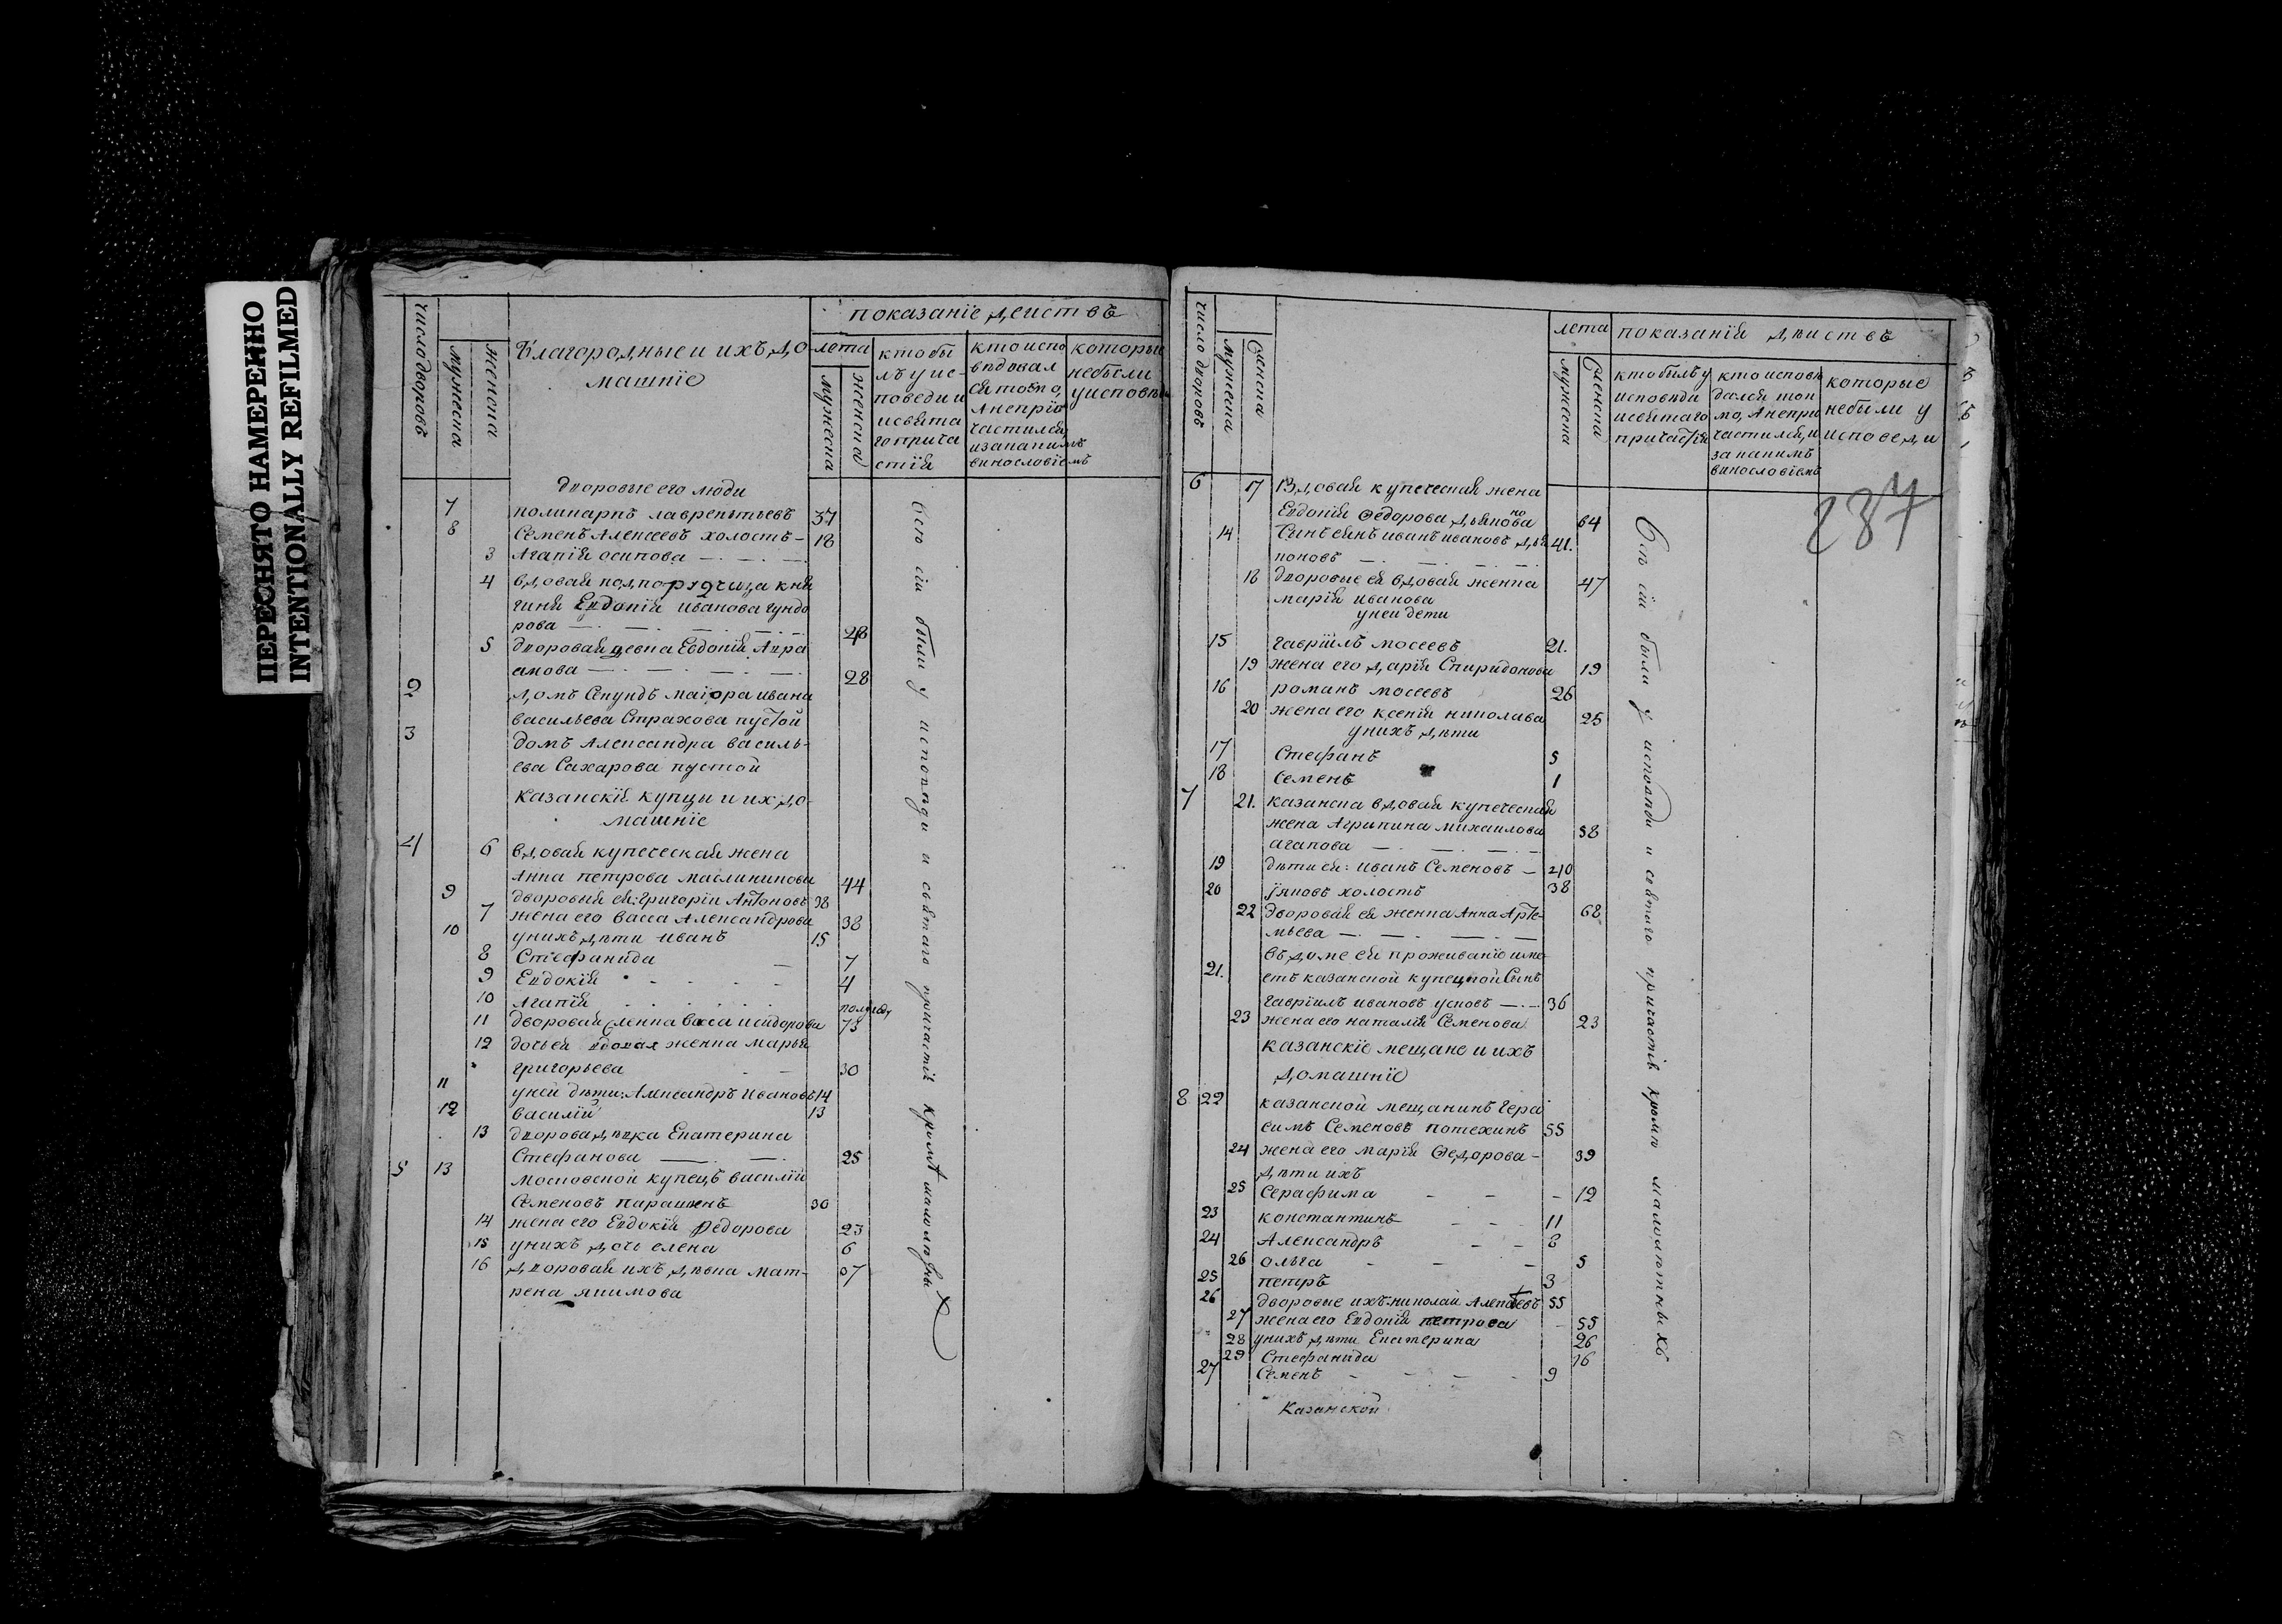 ПЕРЕСНЯТО НАМЕРЕННО
INTENTIONALLY REFILMED
число дворовъ
мужеска
женска
Благородные и ихъ до-
машнïе
показанïе деиствъ
лета
мужеска
женска
кто бы
лъ у ис-
поведи и
исвята
го прича
стïя
кто испо
ведовал
ся токмо,
А непрïо
частился
изакакимъ
винословïемъ
которые
небыли
уисповеди
дворовые его люди
7 поликарпъ лаврентьевъ 37
8 Семенъ Алексеевъ холостъ - 18
3 Агапïя осипова
4 вдовая подпоручица кня
гиня Евдокïя иванова гундо
рова 48
5 дворовая девка Евдокïя Авра
амова 28
2 домъ Секундъ маïора ивана
васильева Страхова пустой
3 домъ Александра василь-
ева Сахарова пустой
Казанскïя купцы и их до-
машнïе
4 6 вдовая купеческая жена
Анна петрова масленикова 44
9 дворовыя ея: григорïи Антоновъ 38
7 жена его васса Александрова 38
10 унихъ дети иванъ 15
8 Стефанида 7
9 Евдокïя 4
10 Агапïя полугод
11 дворовая женка васа исидорова 73
12 дочь ея вдовая женка Марья
григорьева 30
11 уней дети: Александръ Ивановъ 14
12 василïй 13
13 дворова девка Екатерина
Стефанова 25
5 13 московской купецъ василïй
Семеновъ парашинъ 30
14 жена его Евдокïя Федорова 23
15 унихъ дочь елена 6
16 дворовая ихъ девка мат-
рена якимова 37
всѣ сïи были у исповѣди и святаго причастïя кромѣ малолѣтныхъ
число дворовъ
мужеска
женска
лета
мужеска
женска
показанïя дѣиствъ
кто былъ у
исповѣди
исвятаго
причастïя
кто исповѣ
дался ток
мо, А непри
частился, и
за какимъ
винословïемъ
которые
небыли у
исповеди
237
6 17 Вдовая купеческая жена
Евдокïя Федорова дьяконова 64
14 Сынъ ея иванъ ивановъ дья 41.
коновъ
18 дворовые ея вдовая женка 47
марïя иванова
уней дети
15 гаврïилъ мосеевъ 21.
19 жена его дарïя Спиридонова 19
16 романъ мосеевъ 26
20 жена его ксенïя николаева 25
унихъ дѣти
17 Стефанъ 5
18 Семенъ 1
7 21. казанска вдовая купеческая
жена Агрипина михаилова 58
агапова
19 дѣти ея: иванъ Семеновъ - 40
20 яковъ холостъ 38
22 дворовая ея женка Анна Арте- 68
мьева
въ доме ея проживанïе име
21. етъ казанской купецкой Сынъ
гаврïилъ ивановъ усковъ 36
23 жена его наталïя Семенова 23
казанскïе мещане и ихъ
домашнïе
8 22 казанской мещанинъ гера
симъ Семеновъ потехинъ 55
24 жена его марïя Федорова - 39
дѣти ихъ
25 Серафима 12
23 константинъ 11
24 Александръ 8
26 ольга 5
25 петръ 3
26 дворовые ихъ: николай Алексеевъ 55
27 жена его Евдокïя петрова 55
28 унихъ дѣти Екатерина 26
29 Стефанида 16
27 Семенъ 9
Казанской
Всѣ сïи были у исповѣди и святаго причастïя кромѣ малолѣтныхъ